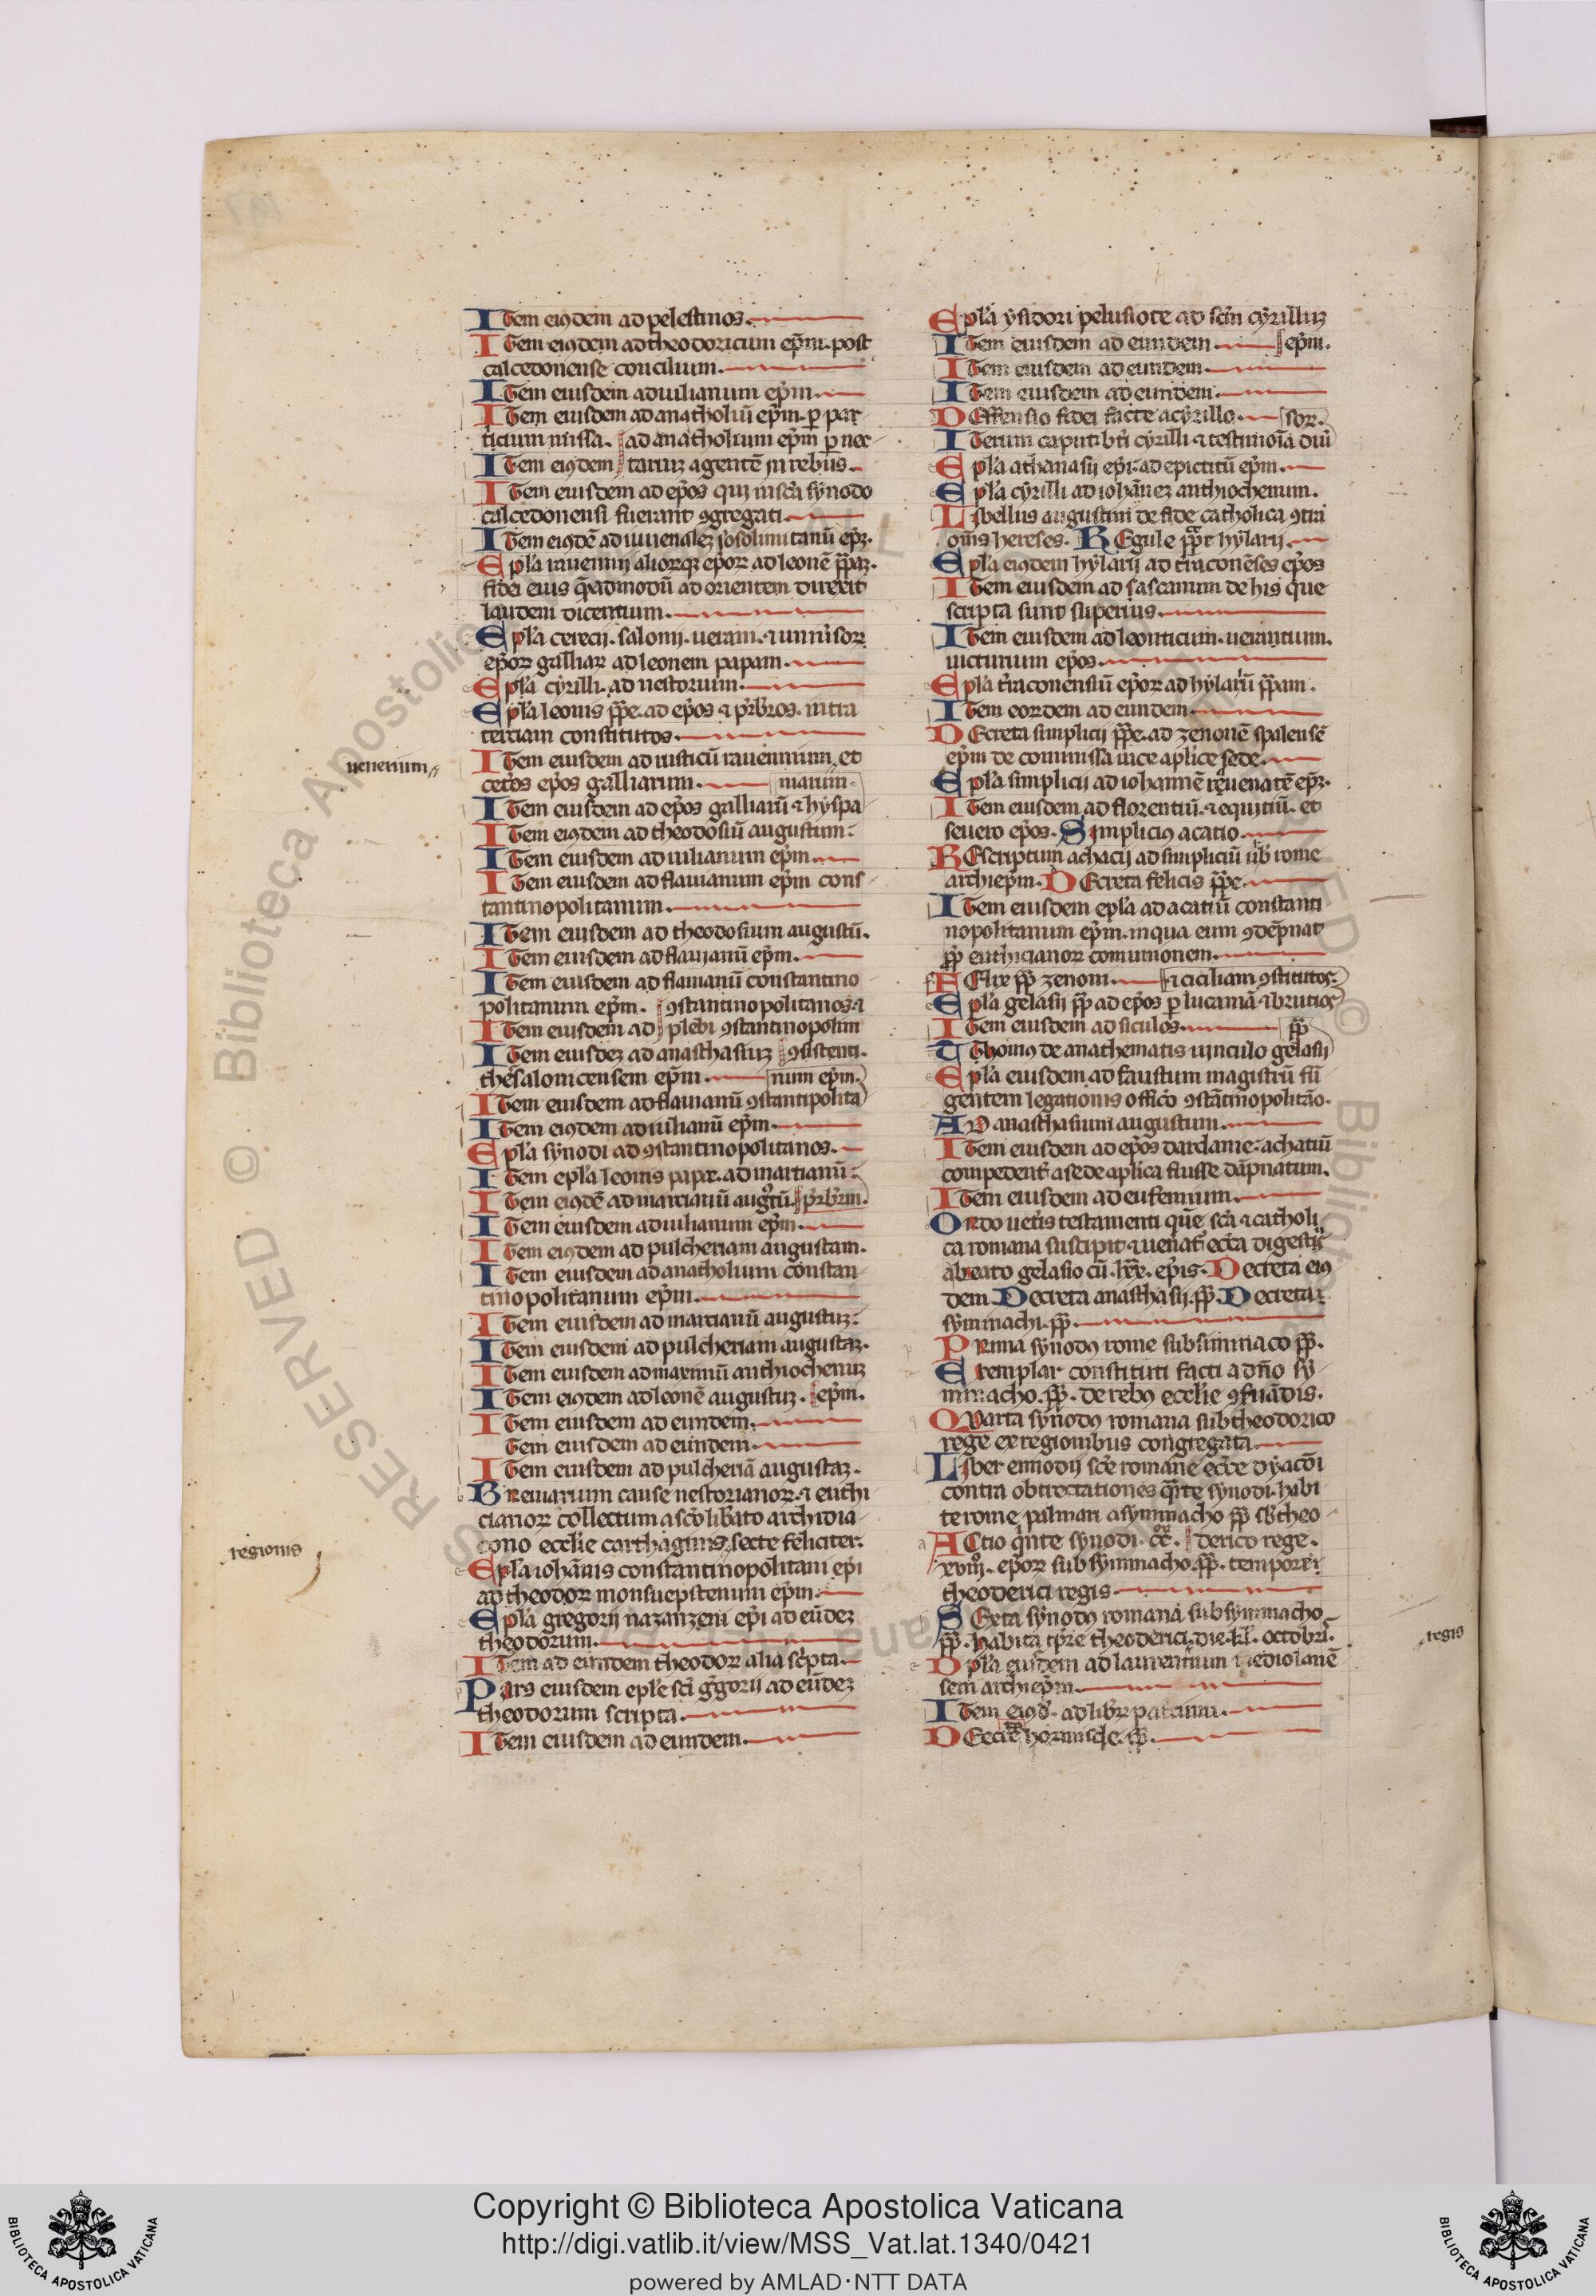 Item eiꝰdem ad pelestinos.
Item eiꝰdem ad theodoricum ep̄m. post
calcedonense concilium.
Item eiusdem ad iulianum ep̄m.
Item eiusdem ad anatholiū ep̄m. ꝑ par
ticium missa. ad anatholium ep̄m ꝑ nec
Item eiꝰdem tariuꝫ agentē in rebus.
Item eiusdem ad ep̄os qui in sc̄a synodo
calcedonensi fuerant ꝯgregati.
Item eiꝰdē ad iuuenaleꝫ Josolimitanū ep̄ꝫ.
Epl'a rauennij aliorꝗꝫ ep̄oꝝ ad leonē pp̄aꝫ.
fidei eius q̄admodū ad orientem direxit
laudem dicentium.
Epl'a cerecij. salonij. uerani. ⁊
ep̄oꝝ galliaꝝ ad leonem papam.
Epl'a cẏrilli. ad nestorium.
Epl'a leonis pp̄e. ad ep̄os ⁊ p̄rbr̄os. intra
terciam constitutos.
uenerium
Item eiusdem ad rusticū rauennium et
cet̄os ep̄os galliarum. niarum.
Item eiusdem ad ep̄os galliarū ⁊ hẏspa
Item eiꝰdem ad theodosiū augustum.
Item eiusdem ad iulianum ep̄m.
Item eiusdem ad flauianum ep̄m cons
tantinopolitanum.
Item eiusdem ad theodosium augustū.
Item eiusdem ad flauianū ep̄m.
Item eiusdem ad flauianū constantino
politanum ep̄m. ꝯstantinopolitanos ⁊
Item eiusdem ad plebi ꝯstantinopolim
Item eiusdeꝫ ad anasthasiuꝫ ꝯsistenti.
thesalonicensem ep̄m. num ep̄m.
Item eiusdem ad flauianū ꝯstantipolita
Item eiꝰdem ad iulianū ep̄m.
Epl'a sẏnodi ad ꝯstantinopolitanos.
Item epl'a leonis pape. ad martianū.
Item eiꝰdē ad marcianū augꝰtū. p̄rbr̄m.
Item eiusdem ad iulianum ep̄m.
Item eiꝰdem ad pulcheriam augustam.
Item eiusdem ad anatholium constan
tinopolitanum ep̄m.
Item eiusdem ad marcianū augustuꝫ.
Item eiusdem ad pulcheriam augustaꝫ.
Item eiusdem ad maximū anthiochenuꝫ
Item eiꝰdem ad leonē augustuꝫ. ep̄m.
Item eiusdem ad eundem.
tem eiusdem ad eundem.
Item eiusdem ad pulcheriā augustaꝫ.
Breuiarium cause nestorianoꝝ. ⁊ euthi
cianoꝝ collectum a sc̄o lib̄ato archidia
cono eccl'ie carthaginis secte feliciter.
regionis
Epl'a ioh̄ānis constantinopolitani ep̄i
ad theodoꝝ monsuepistenum ep̄m.
Epl'a gregorij nazanzeni ep̄i ad eūdeꝫ
theodorum.
Item ad eundem theodoꝝ alia sc̄pta.
Pars eiusdem eple sc̄i ḡgorij ad eūdeꝫ
theodorum scripta.
Item eiusdem ad eundem.
Epl'a ẏsidori pelusiote ad sc̄m cẏrilluꝫ
Item eiusdem ad eundem ep̄m.
Item eiusdem ad eundem.
Item eiusdem ad eundem.
Deffensio fidei facte a cẏrillo. soꝝ.
Iterum caput bt̄i cẏrilli ⁊ testimoīa diui
Epl'a athanasij ep̄i. ad epictitū ep̄m.
Epl'a cẏrilli ad ioh̄āneꝫ anthiochenum.
Libellus augustini de fide catholica ꝯtra
om̄s hereses. Regule pp̄e hẏlarij.
Epl'a eiꝰdem hẏlarij ad t̄raconēses ep̄os
Item eiusdem ad sascanum de his que
scripta sunt superius.
Item eiusdem ad leonticum. uerantum.
uicturium ep̄os.
Epl'a t̄raconensiū ep̄oꝝ ad hẏlarū pp̄am.
Item eordem ad eundem.
Decreta simplicij pp̄e. ad zenonē spalensē
ep̄m de commissa uice aplice sede.
Epl'a simplicij ad iohannē rauenatē ep̄ꝫ.
Item eiusdem ad florentiū. ⁊ equitiū. et
seuero ep̄os. Simpliciꝰ acatio.
Rescriptum achacij ad simpliciū urb̄ rome
archiep̄m. Decreta felicis pp̄e.
Item eiusdem epl'a ad acatiū constanti
nopolitanum ep̄m. in qua eum ꝯdēpnat
pp̄ euthicianoꝝ comunionem.
Felix pp̄ zenoni. ⁊ ciciliam ꝯstitutos.
Epl'a gelasij pp̄ ad ep̄os ꝑ lucaniā ⁊ brutios
Item eiusdem ad siculos. pp̄
Thomꝰ de anathematis uinculo gelasij
Epl'a eiusdem ad faustum magistrū fū
gentem legationis officō ꝯstātinopolitāo.
Ad anasthasium augustum.
Item eiusdem ad ep̄os dardanie. achatiū
compedent̄ a sede aplica fuisse dāpnatum.
Item eiusdem ad eufemium.
Ordo uet̄is testamenti quē sc̄a ⁊ catholi
ca romana suscipit ⁊ uen̄at̄ ecc̄a digestꝰ
a beato gelasio cū. lxx. ep̄is. Decreta eiꝰ
dem. Decreta anasthasij. pp̄. Decreta
sẏmmachi. pp̄.
Prima sẏnodꝰ rome sub simmaco pp̄.
Exemplar constituti facti a dn̄o sẏ
mmacho. pp̄. de rebꝰ eccl'ie ꝯs̄uādis.
Quarta sẏnodꝰ romana sub theodorico
rege ex regionibus congregata.
Liber ennodij sc̄e romane ecc̄e dẏaco̅i
contra obtrectationes q̄rte sẏnodi. habi
te rome palmari a sẏmmacho pp̄ sb̄ theo
Actio q̄nte sẏnodi. derico rege.
xviij. ep̄oꝝ sub sẏmmacho. pp̄. tempore
theoderici regis
Sexta sẏnodꝰ romana sub sẏmmacho
regis
pp̄. habita tp̄re theoderici. die. kl̄. octobrī.
pl'a eiusdem ad laurentium mediolanē
sem archiep̄m.
Item eiꝰd. ad libeꝝ patricium.
hormisde. pp̄.
Copyright © Biblioteca Apostolica Vaticana
http://digi.vatlib.it/view/MSS_Vat.lat.1340/0421
powered by AMLAD·NTT DATA
BIBLIOTECA APOSTOLICA VATICANA
BIBLIOTECA APOSTOLICA VATICANA